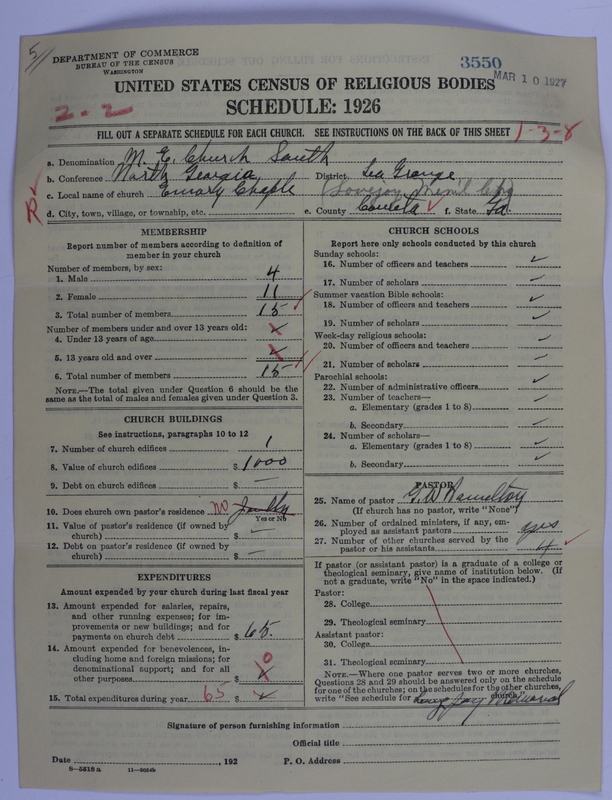 5//
DEPARTMENT OF COMMERCE
BUREAU OF THE CENSUS
WASHINGTON
3550
MAR 10 1927
UNITED STATES CENSUS OF RELIGIOUS BODIES
SCHEDULE: 1926
2-2
FILL OUT A SEPARATE SCHEDULE FOR EACH CHURCH. SEE INSTRUCTIONS ON THE BACK OF THIS SHEET
1-3-8
a. Denomination M. E. Church South
b. Conference North Georgia District La Grange
c. Local name of church Emory Chaple Lovejoy Mem'l Chg
d. City, town, village, or township, etc. e. County Coweta f. State Ga.
MEMBERSHIP
Report number of members according to definition of
member in your church
Number of members, by sex:
1. Male 4
2. Female 11
3. Total number of members 15
Number of members under and over 13 years old:
4. Under 13 years of age
5. 13 years old and over
6. Total number of members 15
NOTE.—The total given under Question 6 should be the
same as the total of males and females given under Question 3.
CHURCH BUILDINGS
See instructions, paragraphs 10 to 12
7. Number of church edifices 1
8. Value of church edifices $ 1000
9. Debt on church edifices $ —
10. Does church own pastor's residence no
Yes or No
11. Value of pastor's residence (if owned by
church) $
12. Debt on pastor's residence (if owned by
church) $ —
EXPENDITURES
Amount expended by your church during last fiscal year
13. Amount expended for salaries, repairs,
and other running expenses; for im-
provements or new buildings; and for
payments on church debt $ 65.
14. Amount expended for benevolences, in-
cluding home and foreign missions; for
denominational support; and for all
other purposes $ 0
15. Total expenditures during year 65 $
CHURCH SCHOOLS
Report here only schools conducted by this church
Sunday schools:
16. Number of officers and teachers ✓
17. Number of scholars ✓
Summer vacation Bible schools:
18. Number of officers and teachers ✓
19. Number of scholars ✓
Week-day religious schools:
20. Number of officers and teachers ✓
21. Number of scholars ✓
Parochial schools:
22. Number of administrative officers ✓
23. Number of teachers—
a. Elementary (grades 1 to 8) ✓
b. Secondary ✓
24. Number of scholars—
a. Elementary (grades 1 to 8) ✓
b. Secondary ✓
PASTOR
25. Name of pastor G. W. Hamilton
(If church has no pastor, write "None")
26. Number of ordained ministers, if any, em-
ployed as assistant pastors yes
27. Number of other churches served by the
pastor or his assistants 4
If pastor (or assistant pastor) is a graduate of a college or
theological seminary, give name of institution below. (If
not a graduate, write "No" in the space indicated.)
Pastor:
28. College
29. Theological seminary
Assistant pastor:
30. College
31. Theological seminary
NOTE.—Where one pastor serves two or more churches,
Questions 28 and 29 should be answered only on the schedule
for one of the churches; on the schedules for the other churches,
write "See schedule for church."
Signature of person furnishing information
Official title
Date , 192 P. O. Address
8—5518 a 11—9054b